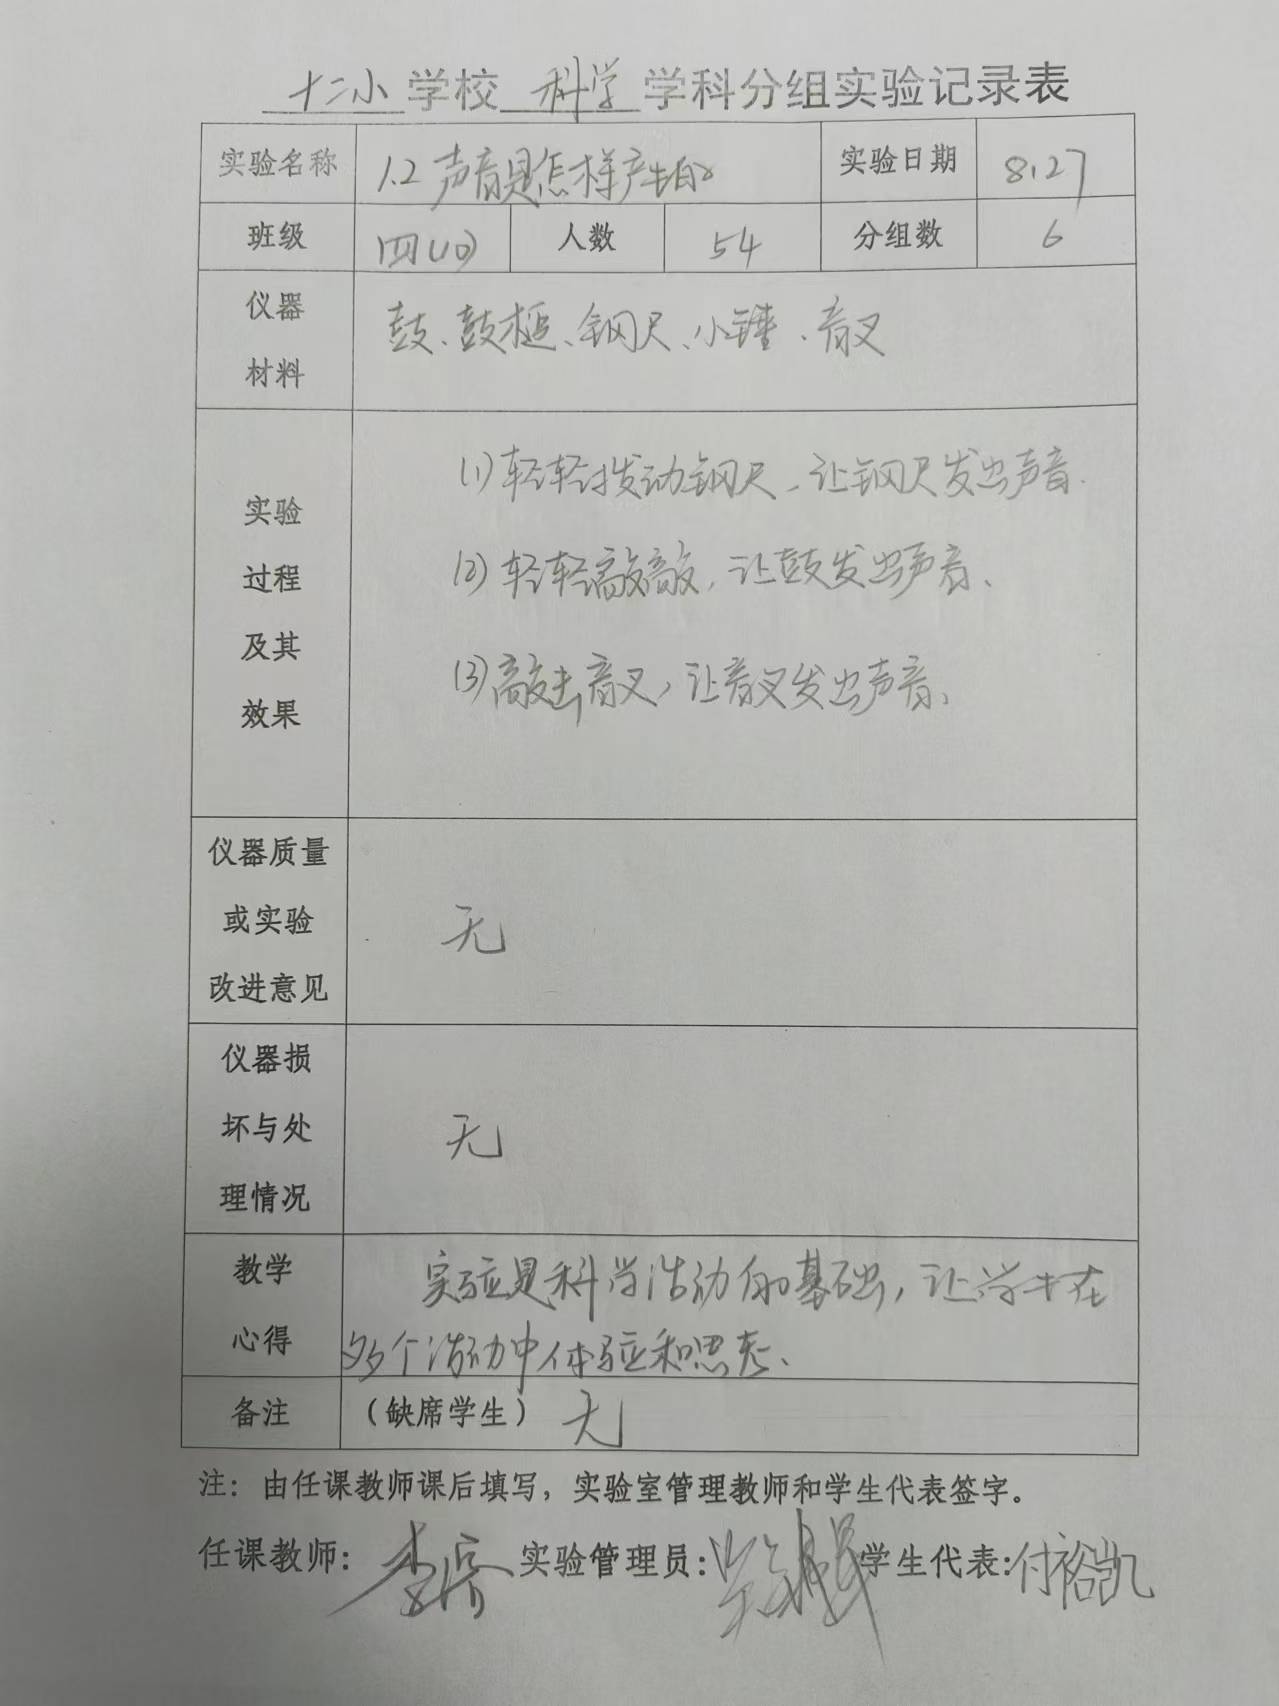 十二小 学校 科学 学科分组实验记录表
实验名称 1.2声音是怎样产生的 实验日期 8.27
班级 四(10) 人数 54 分组数 6
仪器
材料
鼓、鼓槌、钢尺、小锤、音叉
实验
过程
及其
效果
(1)轻轻拨动钢尺，让钢尺发出声音.
(2)轻轻敲鼓，让鼓发出声音、
(3)敲击音叉，让音叉发出声音、
仪器质量
或实验
改进意见
无
仪器损
坏与处
理情况
无
教学
心得
实验是科学活动的基础，让学生在
多个活动中体验和思考、
备注 （缺席学生） 无
注：由任课教师课后填写，实验室管理教师和学生代表签字。
任课教师: 实验管理员: 学生代表:付裕凯